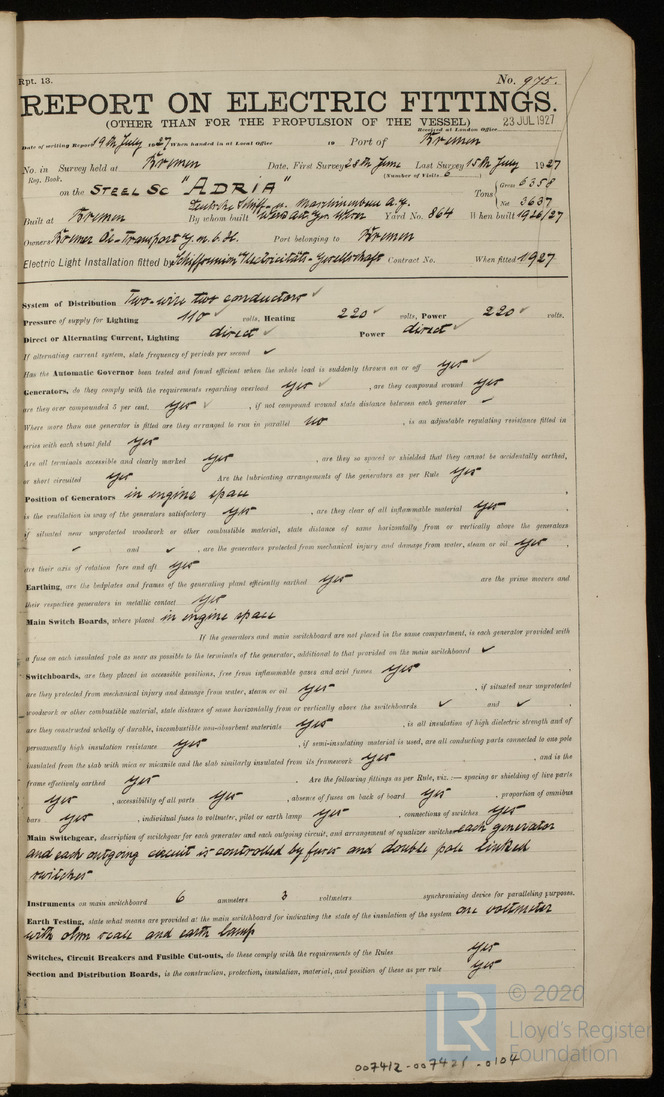 Rpt. 13.
No. 975.
REPORT ON ELECTRIC FITTINGS.
(OTHER THAN FOR THE PROPULSION OF THE VESSEL)
Received at London Office 23 JUL 1927
Date of writing Report 19th July 1927 When handed in at Local Office 19 Port of Bremen
No. in Reg. Book. Survey held at Bremen Date, First Survey 28th June Last Survey 15th July 1927
(Number of Visits 6)
on the STEEL SC "ADRIA" Tons { Gross 6358
Net 3637
Deutsche Schiff- u. Maschinenbau A.G.
Built at Bremen By whom built Yard No. 864 When built 1926/27
Owners Bremer Oel-Transport G.m.b.H. Port belonging to Bremen
Electric Light Installation fitted by Schiffsunion Electricitäts-Gesellschaft Contract No. When fitted 1927
System of Distribution Two-wire two conductors ✓
Pressure of supply for Lighting 110 ✓ volts, Heating 220 ✓ volts, Power 220 ✓ volts.
Direct or Alternating Current, Lighting direct ✓ Power direct ✓
If alternating current system, state frequency of periods per second ✓
Has the Automatic Governor been tested and found efficient when the whole load is suddenly thrown on or off yes ✓
Generators, do they comply with the requirements regarding overload yes ✓ , are they compound wound yes
are they over compounded 5 per cent. yes ✓ , if not compound wound state distance between each generator ✓
Where more than one generator is fitted are they arranged to run in parallel no , is an adjustable regulating resistance fitted in
series with each shunt field yes
Are all terminals accessible and clearly marked yes , are they so spaced or shielded that they cannot be accidentally earthed,
or short circuited yes Are the lubricating arrangements of the generators as per Rule yes
Position of Generators in engine space
is the ventilation in way of the generators satisfactory yes , are they clear of all inflammable material yes
if situated near unprotected woodwork or other combustible material, state distance of same horizontally from or vertically above the generators
✓ and ✓ , are the generators protected from mechanical injury and damage from water, steam or oil yes ,
are their axis of rotation fore and aft yes
Earthing, are the bedplates and frames of the generating plant efficiently earthed yes are the prime movers and
their respective generators in metallic contact yes
Main Switch Boards, where placed in engine space
If the generators and main switchboard are not placed in the same compartment, is each generator provided with
a fuse on each insulated pole as near as possible to the terminals of the generator, additional to that provided on the main switchboard ✓
Switchboards, are they placed in accessible positions, free from inflammable gases and acid fumes yes ,
are they protected from mechanical injury and damage from water, steam or oil yes , if situated near unprotected
woodwork or other combustible material, state distance of same horizontally from or vertically above the switchboards ✓ and ✓ ,
are they constructed wholly of durable, incombustible non-absorbent materials yes , is all insulation of high dielectric strength and of
permanently high insulation resistance yes , if semi-insulating material is used, are all conducting parts connected to one pole
insulated from the slab with mica or micanite and the slab similarly insulated from its framework yes , and is the
frame effectively earthed yes . Are the following fittings as per Rule, viz.:— spacing or shielding of live parts
yes , accessibility of all parts yes , absence of fuses on back of board yes , proportion of omnibus
bars yes , individual fuses to voltmeter, pilot or earth lamp yes , connections of switches yes
Main Switchgear, description of switchgear for each generator and each outgoing circuit, and arrangement of equalizer switches each generator
and each outgoing circuit is controlled by fuses and double pole linked
switches
Instruments on main switchboard 6 ammeters 3 voltmeters synchronising device for paralleling purposes.
Earth Testing, state what means are provided at the main switchboard for indicating the state of the insulation of the system one voltmeter
with ohm scale and earth lamp
Switches, Circuit Breakers and Fusible Cut-outs, do these comply with the requirements of the Rules yes
Section and Distribution Boards, is the construction, protection, insulation, material, and position of these as per rule yes
LR
© 2020
Lloyd's Register
Foundation